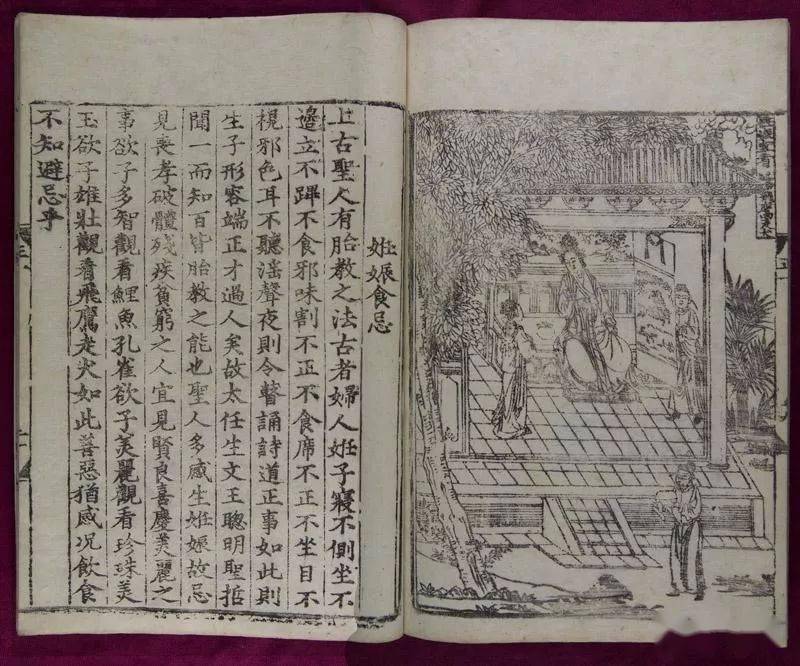 姙娠食忌
上古聖人有胎教之法古者婦人姙子寢不側坐不
邊立不蹕不食邪味割不正不食席不正不坐目不
視邪色耳不聽淫聲夜則令瞽誦詩道正事如此則
生子形容端正才過人矣故太任生文王聰明聖哲
聞一而知百皆胎教之能也聖人多感生姙娠故忌
見喪孝破體殘疾貧窮之人宜見賢良喜慶美麗之
事欲子多智觀看鯉魚孔雀欲子美麗觀看珍珠美
玉欲子雄壯觀看飛鷹走犬如此善惡猶感况飲食
不知避忌乎